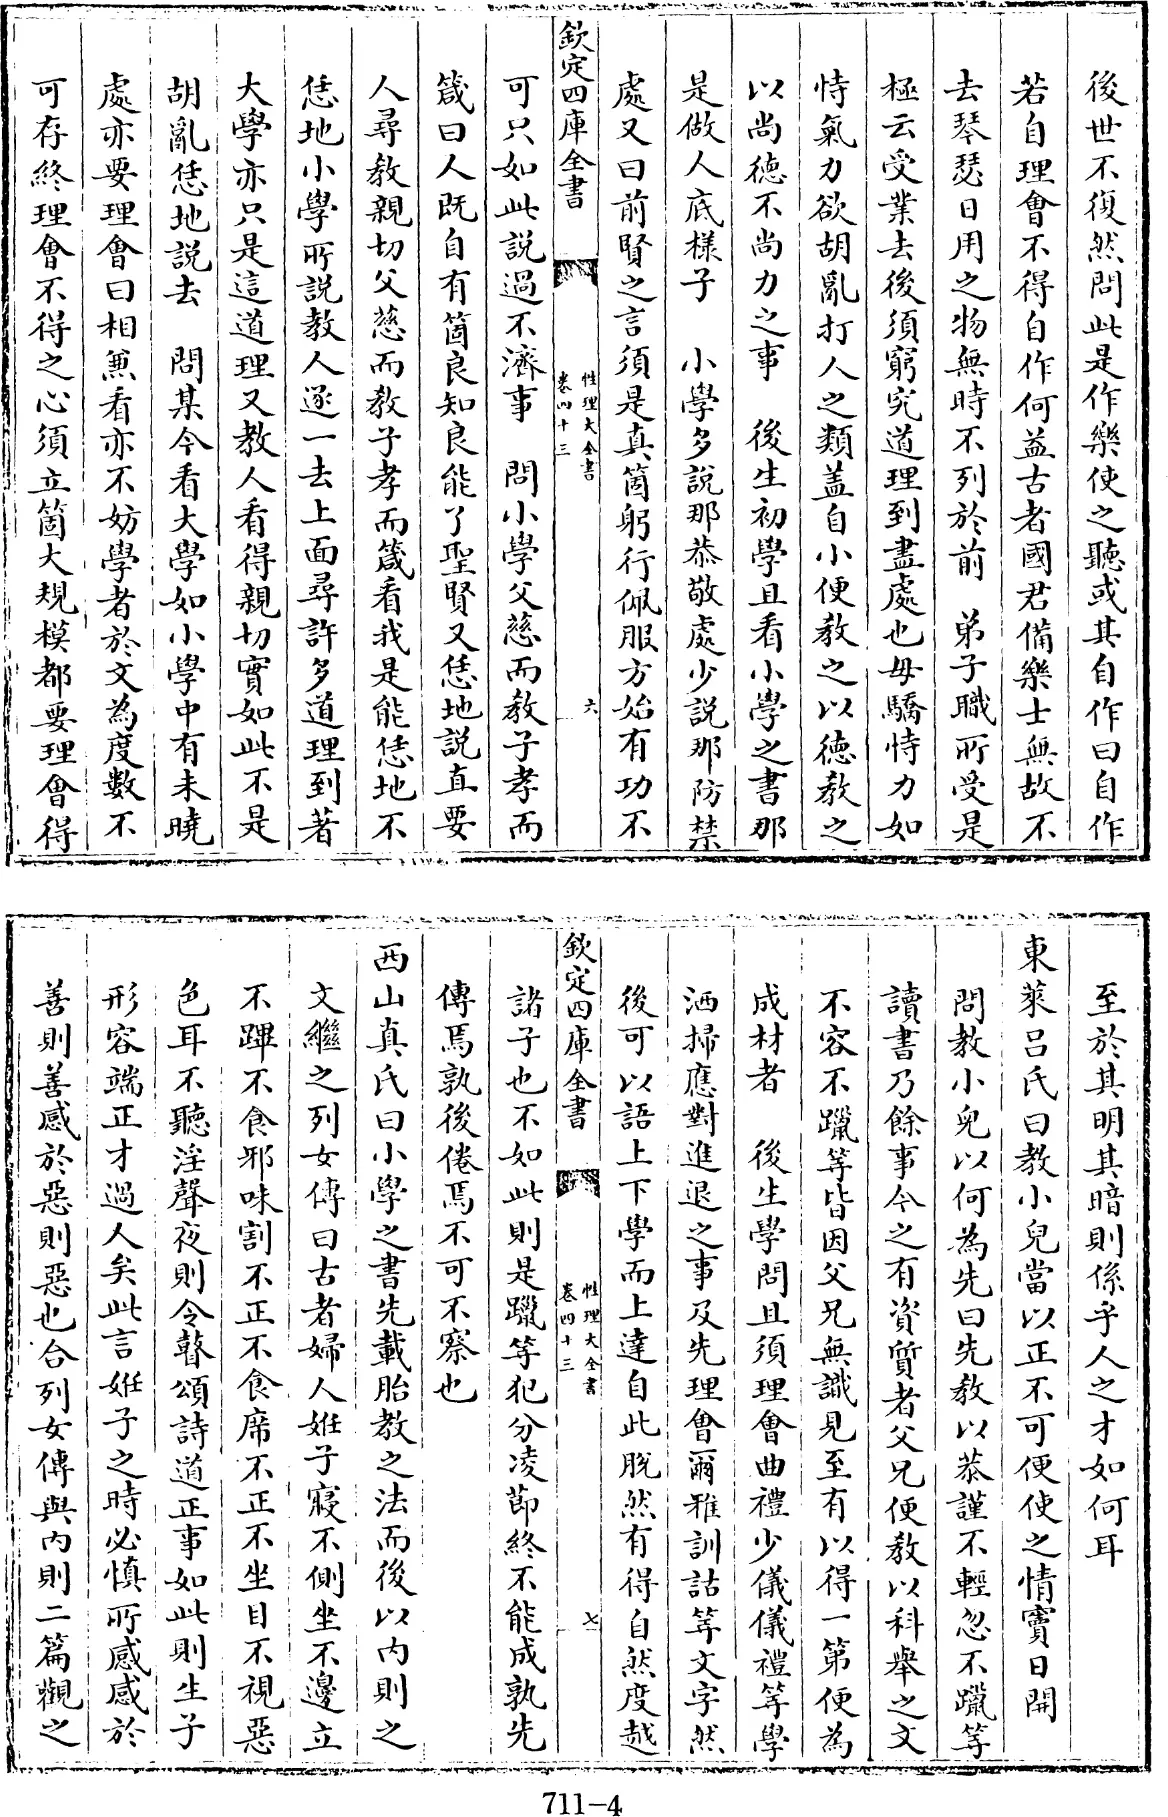 後世不復然問此是作樂使之聽或其自作曰自作
若自理會不得自作何益古者國君備樂士無故不
去琴瑟日用之物無時不列於前　弟子職所受是
極云受業去後須窮究道理到盡處也毋驕恃力如
恃氣力欲胡亂打人之類盖自小便教之以徳教之
以尚徳不尚力之事　後生初學且看小學之書那
是做人底様子　小學多説那恭敬處少説那防禁
處又曰前賢之言須是真箇躬行佩服方始有功不
欽定四庫全書
性理大全書
卷四十三
六
可只如此説過不濟事　問小學父慈而教子孝而
箴曰人既自有箇良知良能了聖賢又恁地説直要
人尋教親切父慈而教子孝而箴看我是能恁地不
恁地小學所説教人逐一去上面尋許多道理到著
大學亦只是這道理又教人看得親切實如此不是
胡亂恁地説去　問某今看大學如小學中有未曉
處亦要理會曰相兼看亦不妨學者於文為度數不
可存終理會不得之心須立箇大規模都要理會得
至於其明其暗則係乎人之才如何耳
東萊呂氏曰教小兒當以正不可便使之情竇日開
問教小兒以何為先曰先教以恭謹不輕忽不躐等
讀書乃餘事今之有資質者父兄便教以科舉之文
不容不躐等皆因父兄無識見至有以得一第便為
成材者　後生學問且須理會曲禮少儀儀禮等學
洒掃應對進退之事及先理會爾雅訓詁等文字然
後可以語上下學而上達自此脱然有得自然度越
欽定四庫全書
性理大全書
卷四十三
七
諸子也不如此則是躐等犯分凌節終不能成孰先
傳焉孰後倦焉不可不察也
西山真氏曰小學之書先載胎教之法而後以内則之
文繼之列女傳曰古者婦人姙子寢不側坐不邊立
不蹕不食邪味割不正不食席不正不坐目不視惡
色耳不聽淫聲夜則令瞽頌詩道正事如此則生子
形容端正才過人矣此言姙子之時必慎所感感於
善則善感於惡則惡也合列女傳與内則二篇觀之
711-4